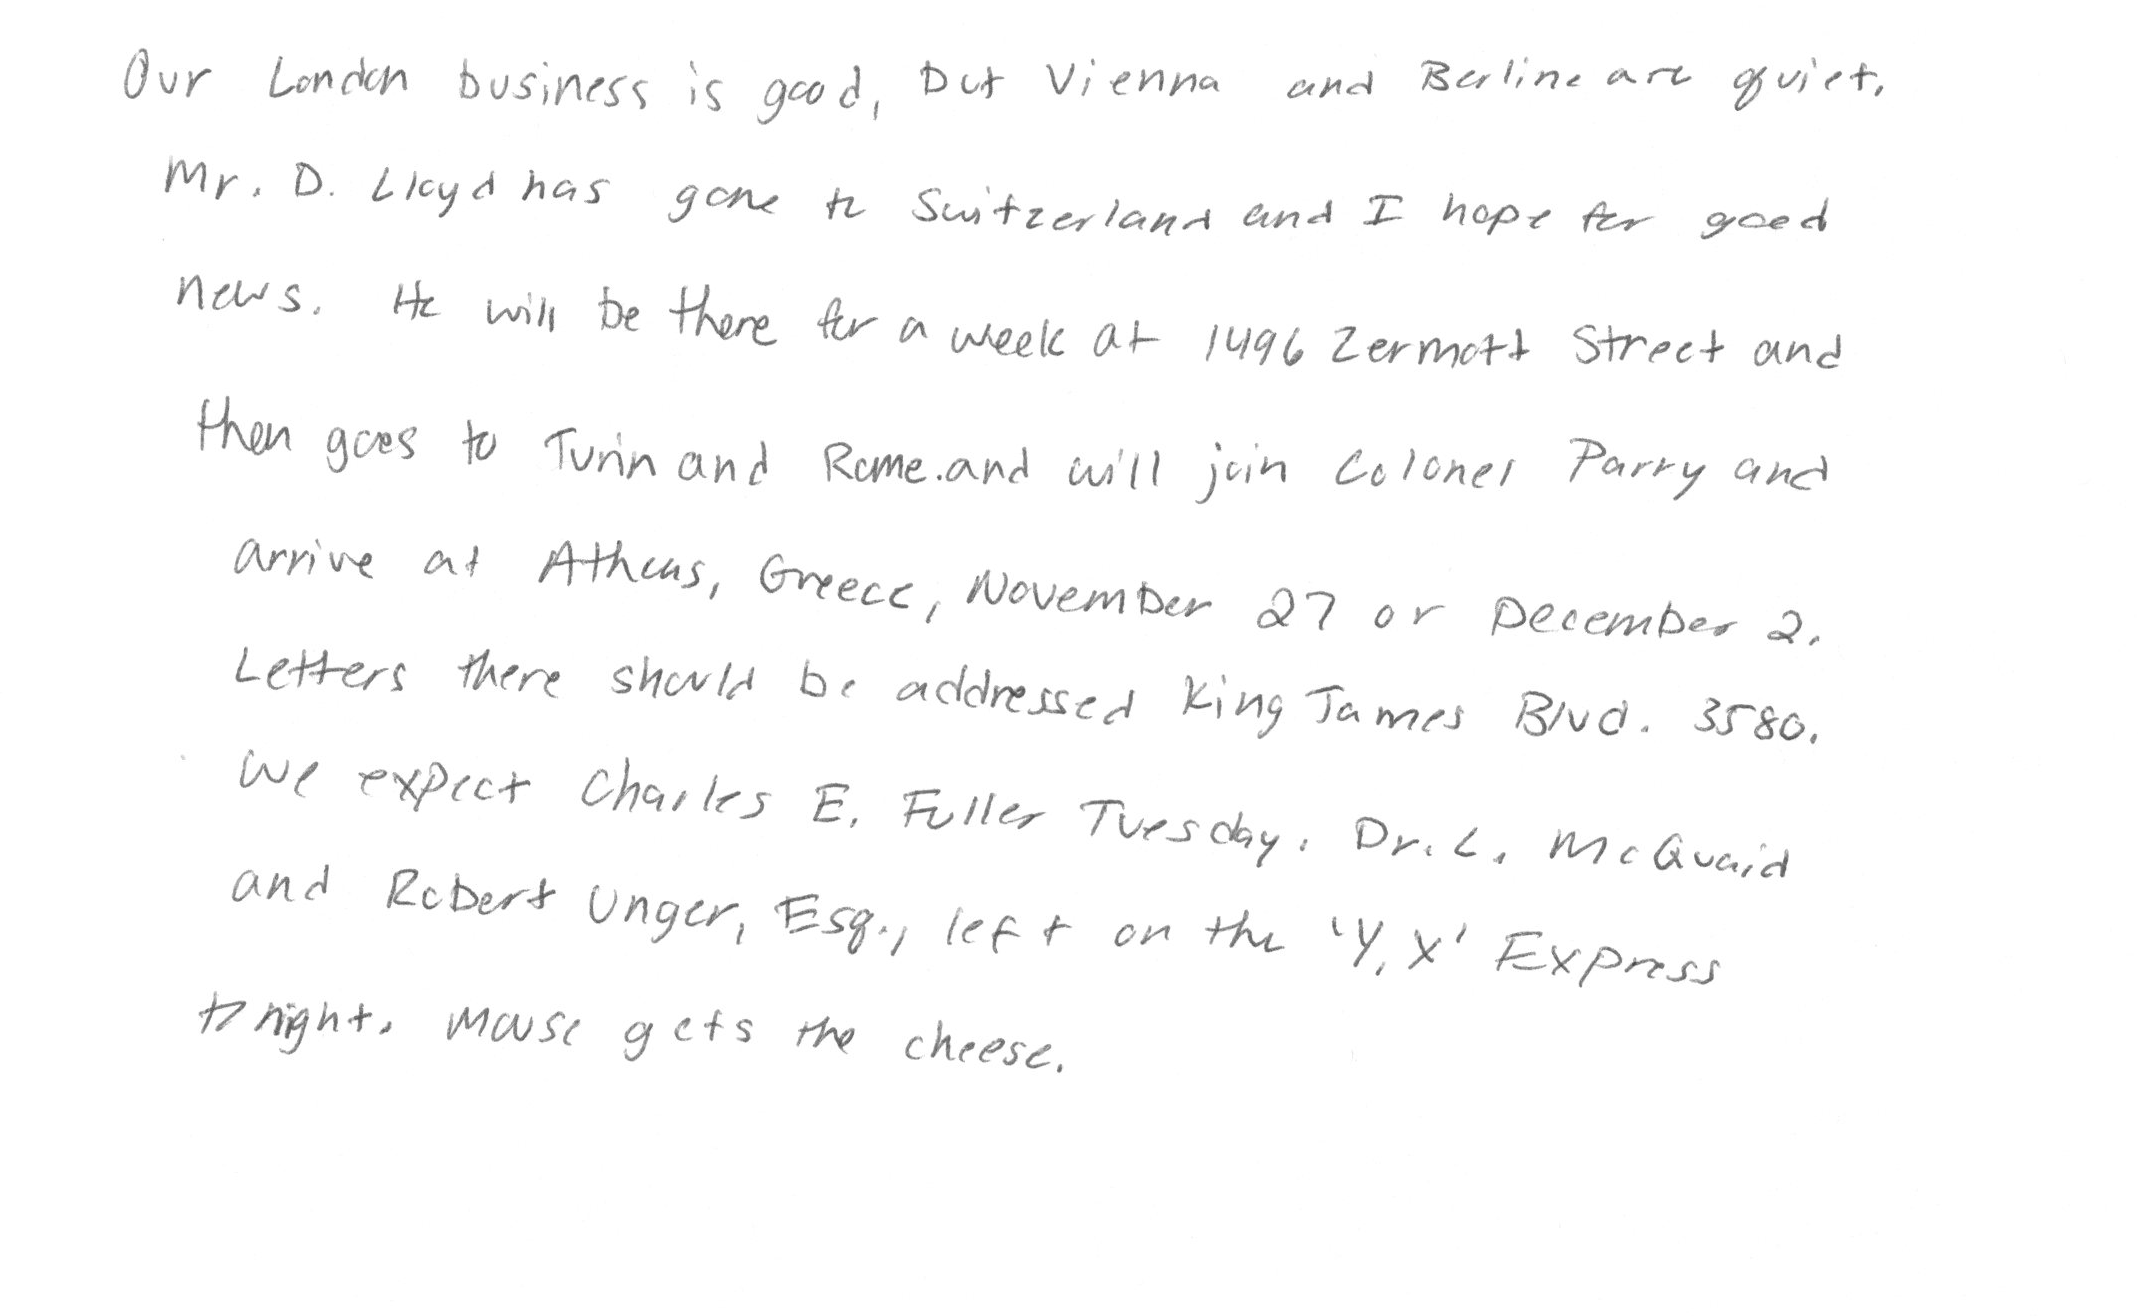 Our London business is good, but Vienna and Berline are quiet.
Mr. D. Lloyd has gone to Switzerland and I hope for good
news. He will be there for a week at 1496 Zermott Street and
then goes to Turin and Rome.and will join Colonel Parry and
arrive at Athens, Greece, November 27 or December 2.
Letters there should be addressed King James Blvd. 3580.
We expect Charles E. Fuller Tuesday. Dr. L. McQuaid
and Robert Unger, Esq., left on the 'Y, X' Express
tonight. Mouse gets the cheese.